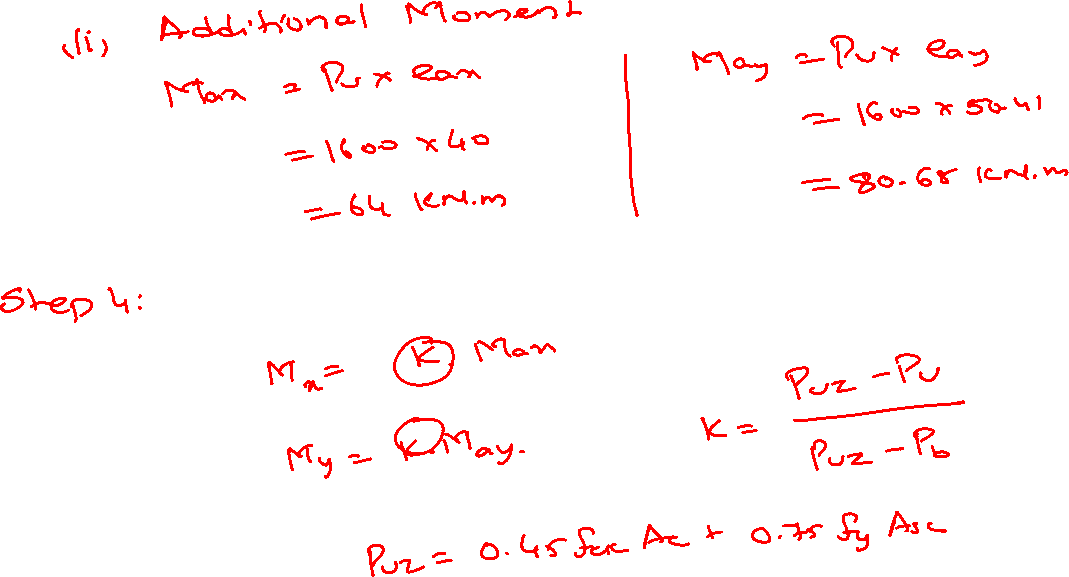 (ii) Additional Moment
Max = Pu x eax
= 1600 x 40
= 64 kN.m
May = Pu x eay
= 1600 x 50.41
= 80.65 kN.m
Step 4:
Mx = K Max
My = K May.
K = (Puz - Pu) / (Puz - Pb)
Puz = 0.45 fck Ac + 0.75 fy Asc